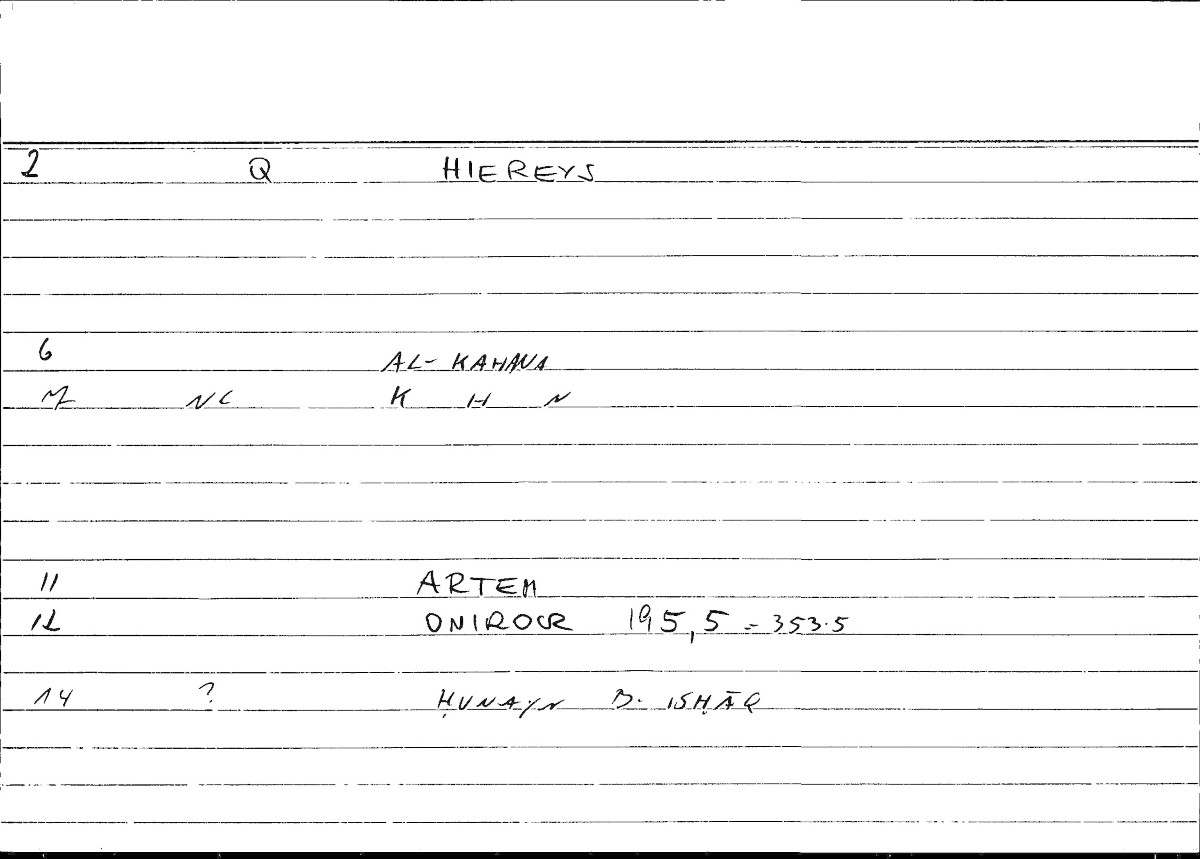 2 Q HIEREYS
6 AL-KAHANA
NC K H N
11 ARTEM
12 ONIROCR 195,5 = 353.5
14 ? ḤUNAYN B. ISḤĀQ